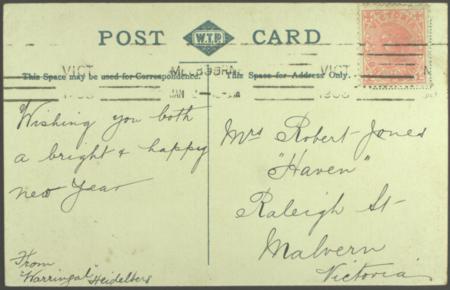 POST W.T.P. CARD
This Space may be used for Correspondence.
This Space for Address Only.
VICT
VICT
JAN
Wishing you both
a bright & happy
new Year
From
"Warringal" Heidelberg
Mrs Robert Jones
"Haven"
Raleigh St
Malvern
Victoria